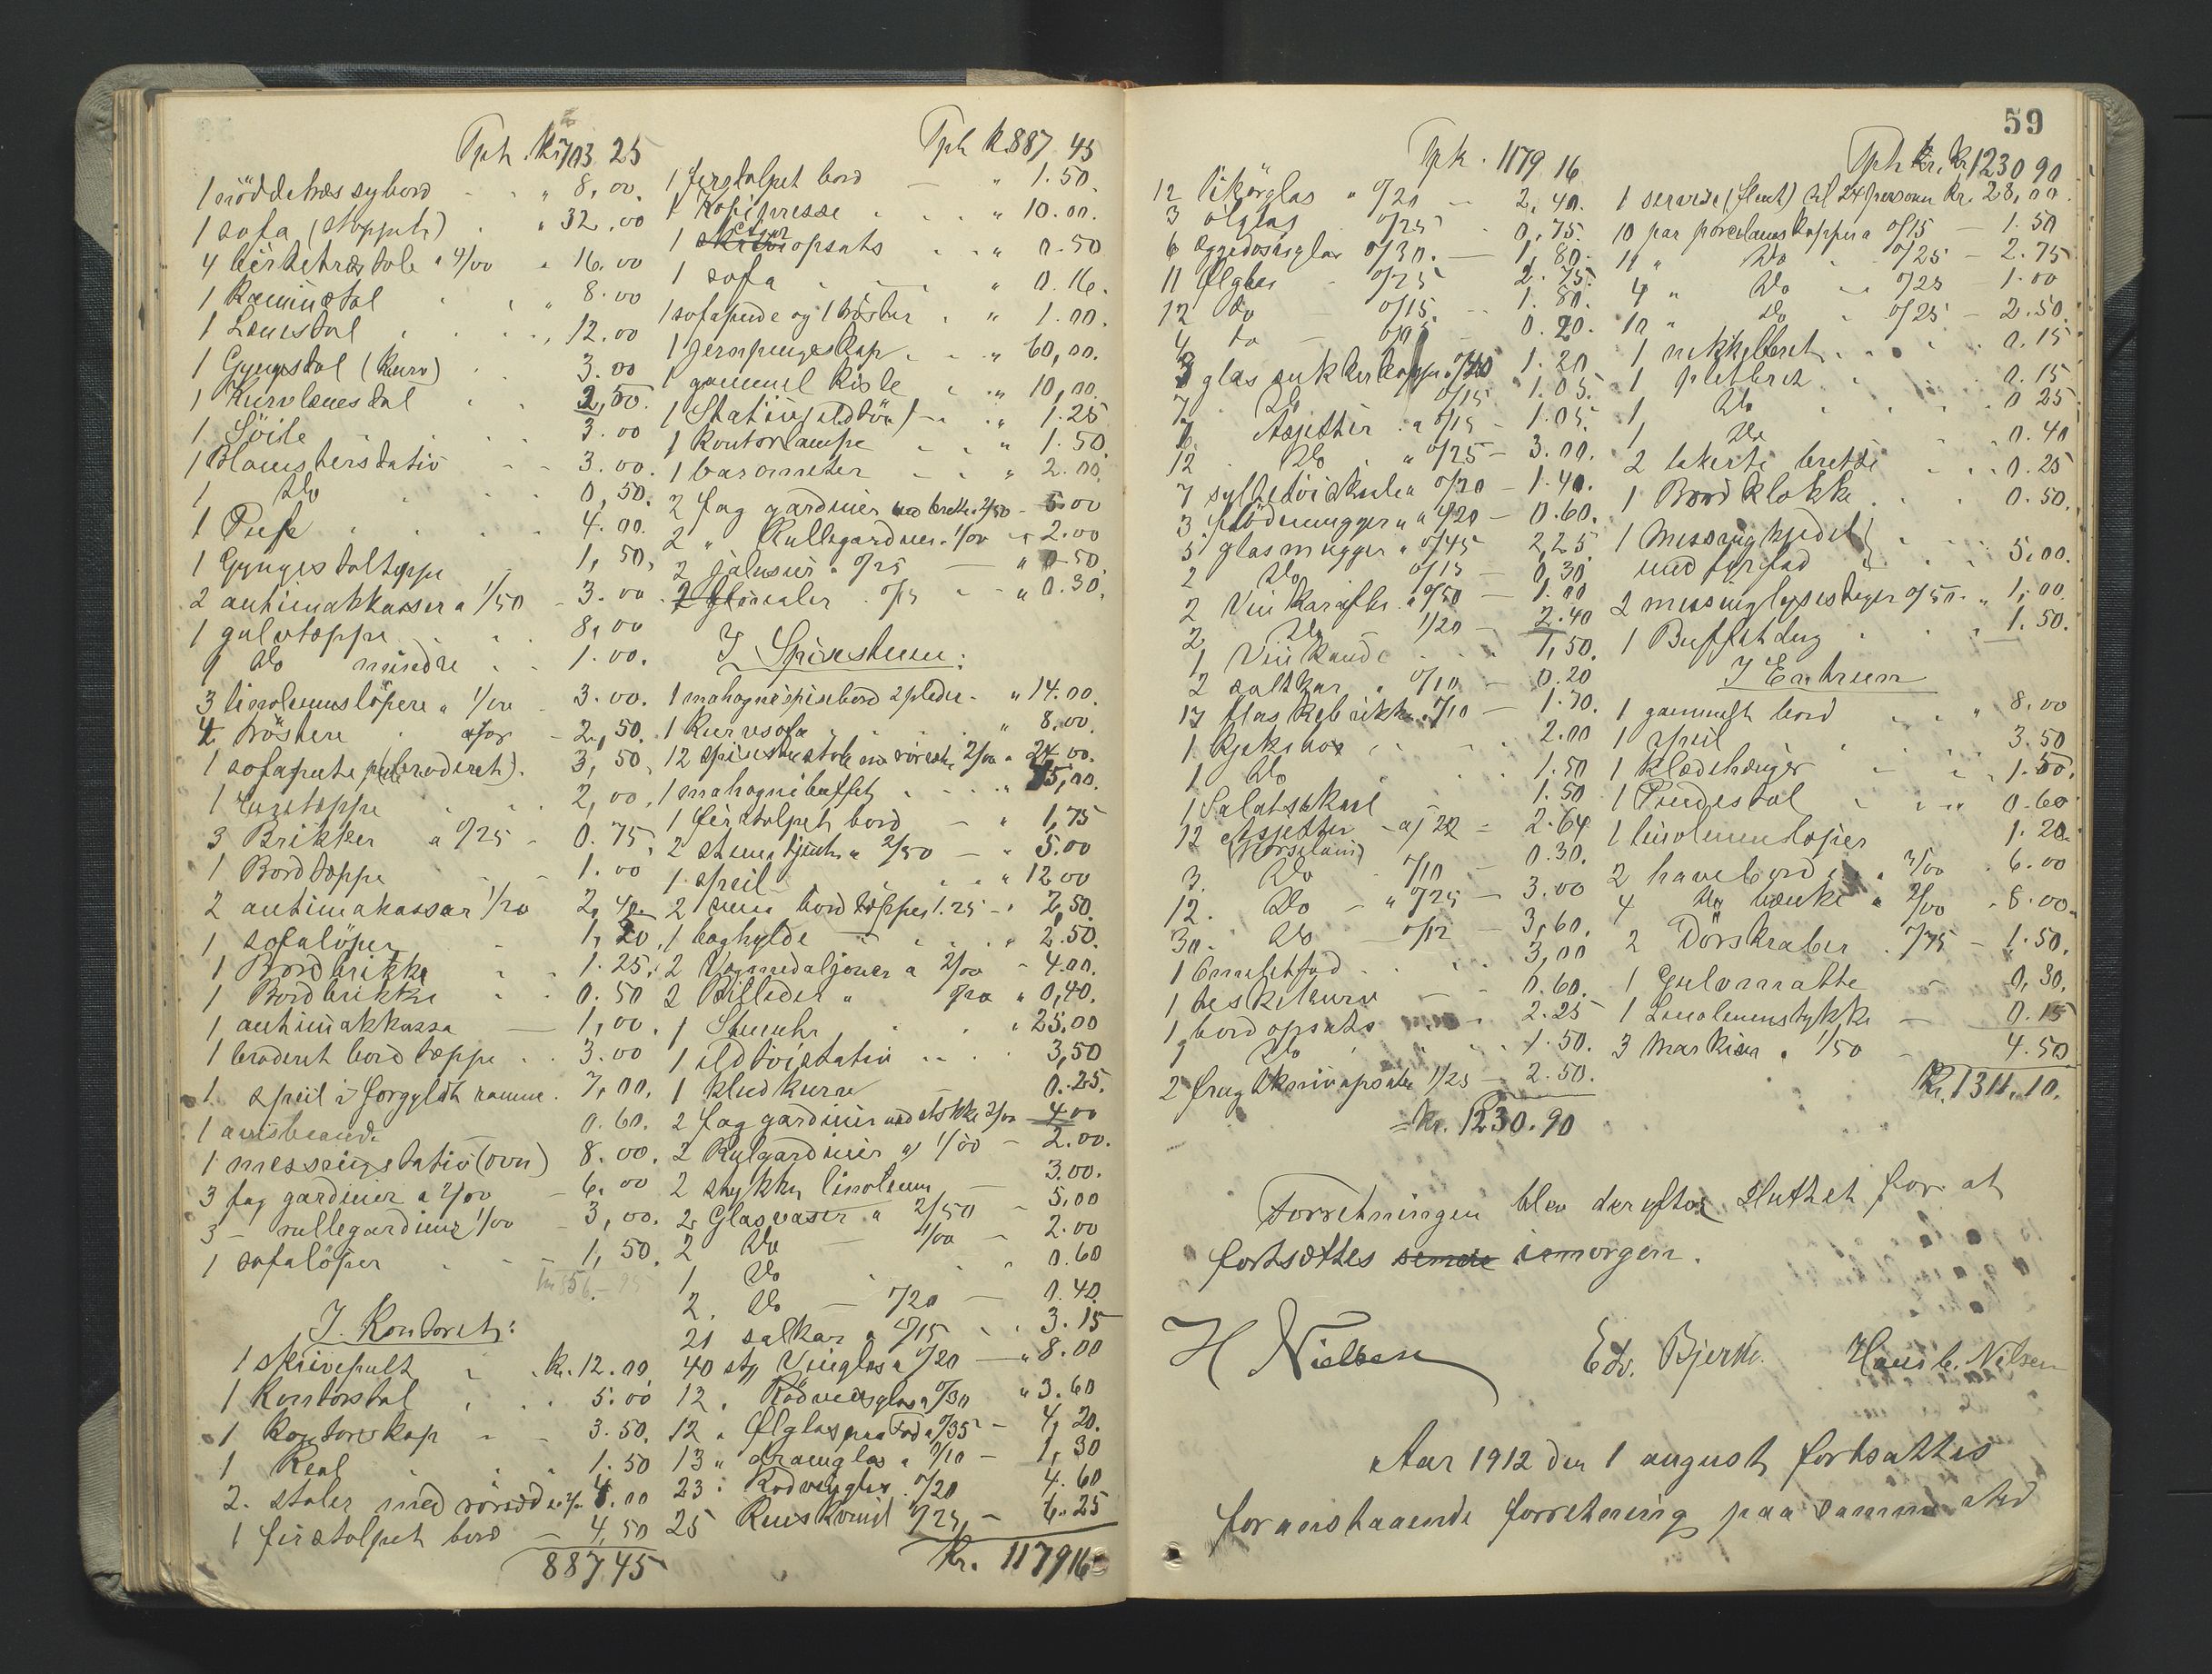 Tph. Kr. 703 25
1 nöddetræs sybord " 8,00.
1 sofa (stoppet) " 32,00
4 birketræstole a 4/00 " 16.00
1 Kaminstol " 8.00
1 Lænestol " 12.00
1 Gyngstol (kurv) 3.00
1 Kurvlænestol 2,50.
1 Söile 3.00
1 Blomsterstativ 3.00.
1 Do 0,50.
1 Puf 4.00.
1 Gyngestolteppe 1,50,
2 antimakkasser a 1/50 3.00
1 gulvtæppe 8,00
1 do mindre 1.00.
3 linoleumslöpere a 1/00 3.00.
4 trösterer 2,50.
1 sofapute (broderet). 3,50
1 2,00,
3 Brikker a 0/25 0.75,
1 Bordtæppe 1.00
2 antimakassar 1/20 2,40
1 sofalöper 1,20.
1 Bordbrikke 1.25.
1 Bordbrikke 0.50
1 antimakkassa 1,00.
1 broderet bordtæppe 3.00
1 speil i forgyldt ramme. 7,00,
1 avisbrand. 0.60.
1 messingstativ (ovn) 8.00.
3 fag gardiner a 2/00 6.00
3 - rullegardiner 1/00 3,00.
1 sofalöper 1,50.
I Kontoret:
1 skrivepult Kr. 12.00
1 Kontorstol 5.00
1 Kontorskap 3.50.
1 Reol 1.50
2. stoler med rörsæde a 2/. 4.00
1 firstolpet bord 4,50
887,45
Tph Kr. 887 45
1 firstolpet bord " 1.50.
1 Kopipresse " 10.00.
1 opsats " 0.50
1 sofa " 0.16.
1 sofapude og 1 tröster " 1.00.
1 jernpengeskap " 60,00.
1 gammel kiste " 10,00.
1 Stativ (ildtöi) " 1.25
1 Kontorlampe " 1.50
1 barometer " 2.00,
2 fag gardiner med bretter 2/50 - 5.00
2 " Rullegardiner 1/00 2.00
2 jalusier a 0/25 " 0.50.
2 0/15 " 0.30.
I Spisestuen:
1 mahognispisebord 2 plader " 14.00.
1 Kurvesofa " 8.00.
12 spisestuestole med rörsæde 2/00 " 24.00.
1 mahognibuffet " 45,00.
1 firstolpet bord " 1,75
2 stumtjenere a 2/50 " 5.00
1 speil " 12 00
2 bordtæpper 1.25 2,50.
1 boghylde " 2.50.
2 Vægmedaljoner a 2/00 4.00.
2 Billeder " 0/20 " 0,40.
1 Stueuhr " 25.00
1 ildtöistativ 3,50
1 kludkurv 0.25.
2 fag gardiner med stokke 2/00 4.00
2 Rulgardiner a 1/00 2.00.
2 stykker linoleum 3.00.
2 Glasvaser a 2/50 5.00
2 Do 1/00 2.00
1 Do 0.60
2. Do 0/20 0.40.
21 saltkar a 0/15 3.15
40 stk Vinglas a 0/20 " 8.00
12. Rödvinsglas a 0/30 " 3.60
12 " Ølglas paa Fod a 0/35 4,20.
13 " dramglas a 0/10 1,30
23 : Rödvinglas. 0/20 4.60
25 Rinskvinsgl 0/25, 6.25
Kr. 117916
59
Tph. 1179 16
12 likörglas " 0/20 2,40.
3 ölglas 0/25 0,75.
6 Eggedosisglas 0/30. 1,80.
11 Ølglas 0/25 2.75.
12 Do 0/15. 1.80.
4 Do 0/05 0.20.
3 glas sukkerkopper 0/40 1.20
7 Do 0/15 1.05.
7 Asjetter a 0/15 1.05.
12 Do " 0/25 3.00.
7 syltetöiskaale 0/20 1.40.
3. flödemugger a 0/20 0.60.
5 glasmugger a 0/45 2,25
2 Do 0/15 0,30
2 Vin karafler a 0/50 1.00
2 Do 1/20 2.40
1 Vinkande 1,50.
2 saltkar a 0/10 0.20
17 flaskebrikker 0/10 1.70.
1 Kjeksbox 2.00
1 Do 1.50
1 Salatskaal 1.50
12 Asjetter a/22 2.64
(Porselain)
3. Do 0/10 0.30.
12. Do " 0/25 3.00
30. Do 0/12 3,60.
1 3,00
1 0.60.
1 bordopsats 2.25
1 Do 1.50.
2 frugtknivopsats 1/25 2.50.
= kr. 1230.90
Tph Kr. Kr. 1230 90
1 servise (stent) til 24 personer Kr. 28,00.
10 par porcelænskopper a 0/15 1.50
11 " Do 0/25 2.75
4 " Do 0/25 1.00
10 " Do 0/25 2.50.
1 nikkelbret 0.15
1 pletbret 0.15
1 Do 0 25
1 Do 0.40
2 lakerte bretter 0.25
1 Bordklokke 0.50.
1 Messingkjedel
med fyrfad 5,00.
2 messinglysestager 0/50. 1,00.
1 Buffetdug 1.50.
I Entreen
1 gammelt bord 8.00
1 speil 3.50
1 Klædehænger 1.50.
1 Pindestol 0.60
1 linoleumsløper 1.20
2 havebord a 3/00 6.00
4 Do bænke a 2/00 8.00.
2 Dörskraber 0/75 1.50.
1 Gulvmatte 0,30.
1 Linoleumstykke 0.15
3 Markiser a 1/50 4.50
Kr. 1311.10.
Forretningen blev derefter sluttet for at
fortsættes imorgen.
H Nielsen Edv. Bjerke. Hans C. Nilsen
Aar 1912 den 1 august fortsattes
foranstaaende forretning paa samme sted